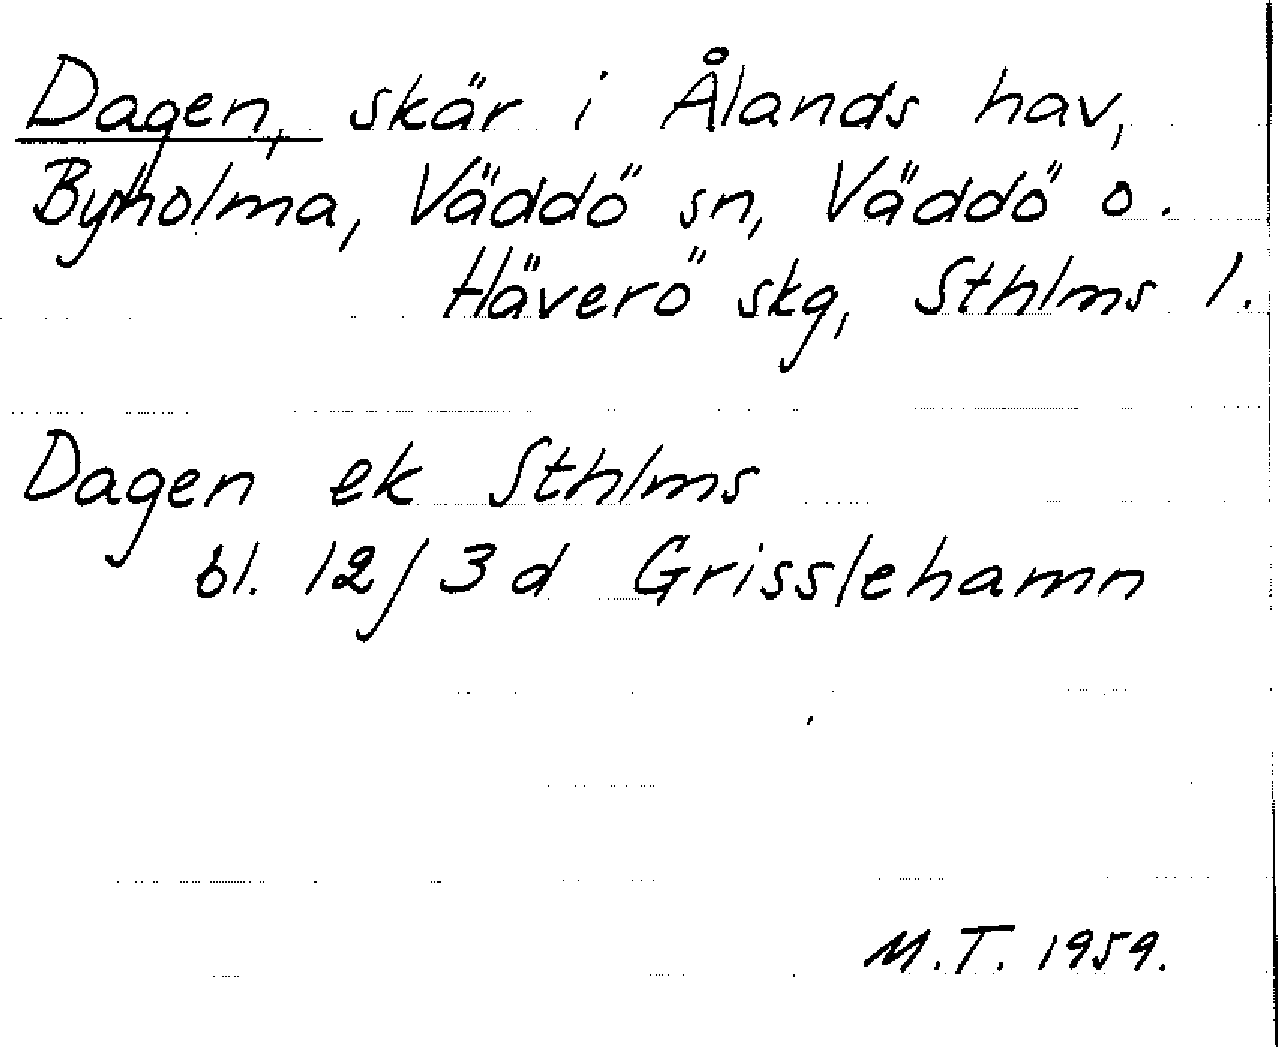 Dagen, skär i Ålands hav,
Byholma, Väddö sn, Väddö o.
Häverö skg, Sthlms l.
Dagen ek Sthlms
bl. 12/3d Grisslehamn
M.T. 1959.